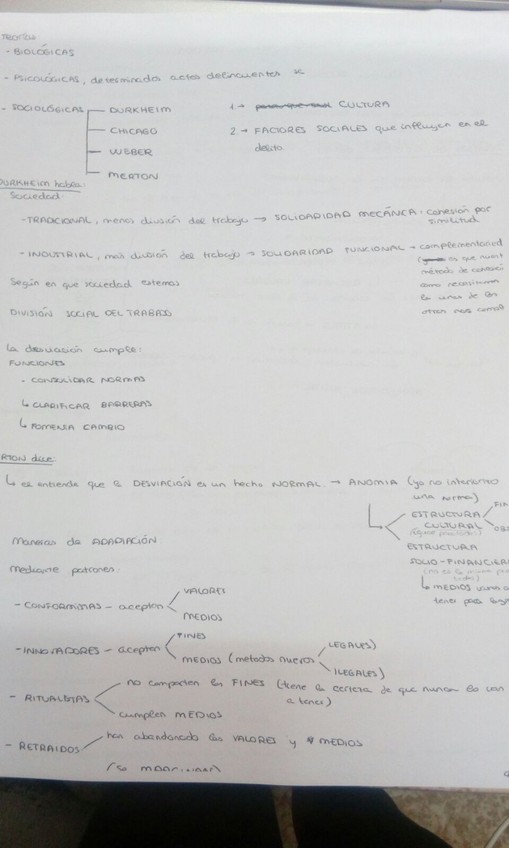 Teorías
- BIOLÓGICAS
- PSICOLÓGICAS, determinados actos delincuentes x
- SOCIOLÓGICAS
DURKHEIM
CHICAGO
WEBER
MERTON
1 → CULTURA
2 → FACTORES SOCIALES que influyen en el
delito
DURKHEIM habla:
Sociedad
- TRADICIONAL, menos división del trabajo → SOLIDARIDAD MECÁNICA: cohesión por
similitud
- INDUSTRIAL, más división del trabajo → SOLIDARIDAD FUNCIONAL → complementaried
método de cohesión
como necesitamos
Según en que sociedad estemos
DIVISIÓN SOCIAL DEL TRABAJO
La desviación cumple:
FUNCIONES
· CONSOLIDAR NORMAS
↳ CLARIFICAR BARRERAS
↳ FOMENTA CAMBIO
RTON dice:
↳ es entienda que la DESVIACIÓN es un hecho NORMAL → ANOMIA (ya no interiorizo
una norma)
ESTRUCTURA
CULTURAL
ESTRUCTURA
FOLIO-FINANCIERA
↳ MEDIOS
tener para
Maneras de ADAPTACIÓN
Mediante patrones:
- CONFORMISTAS - aceptan
VALORES
MEDIOS
- INNOVADORES - aceptan
FINES
MEDIOS (métodos nuevos
LEGALES)
ILEGALES)
- RITUALISTAS
no comparten los FINES (tiene la certeza de que nunca los van
a tener)
cumplen MEDIOS
- RETRAIDOS
han abandonado los VALORES y MEDIOS
(se marginan)